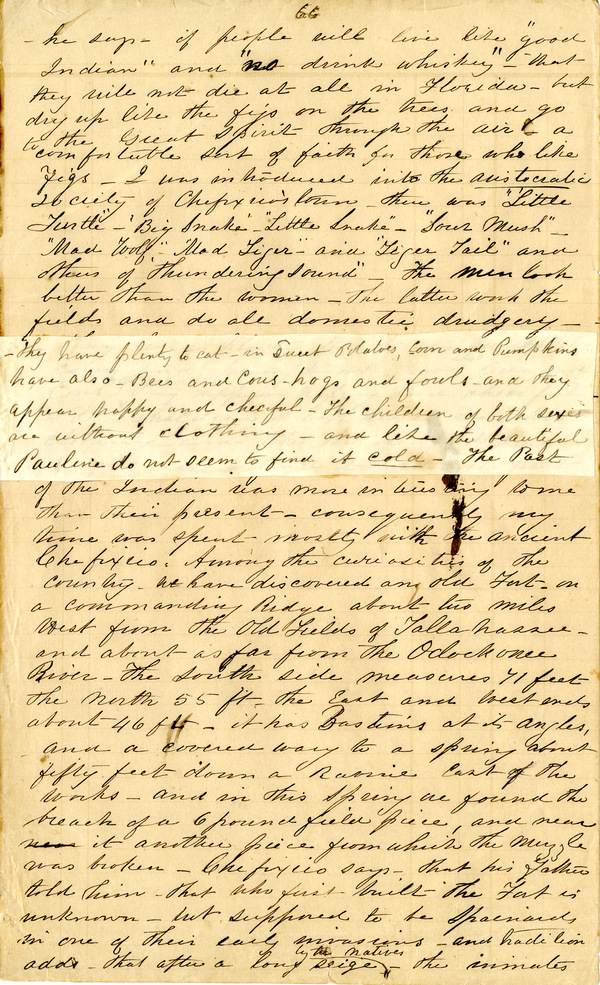 66
- he says - if people will live like "good
Indian" and "no drink whiskey" - that
they will not die at all in Florida - but
dry up like the figs on the trees and go
to the Great Spirit through the air - a
comfortable sort of faith for those who like
figs - I was introduced into the aristocratic
Society of Chefixico's town - there was "Little
Turtle" - "Big Snake" - "Little Snake" - "Sour Mush" -
"Mad Wolf" - "Mad Tiger" - and "Tiger Tail" and
others of "thundering sound" - The men look
better than the women - the latter work the
fields and do all domestic drudgery -
- They have plenty to eat - in Sweet Potatoes, Corn and Pumpkins
have also - Bees and Cows - hogs and fowls - and they
appear happy and cheerful - The children of both sexes
are without clothing - and like the beautiful
Pauline do not seem to find it cold - The Past
of the Indian was more interesting to me
than their present - consequently my
time was spent mostly with the ancient
Chefixico. Among the curiosities of the
country - we have discovered an old Fort - on
a commanding Ridge about two miles
West from the Old Fields of Tallahassee -
and about as far from the Ockockonee
River - The South side measures 71 feet
the North 55 ft - the East and West ends
about 46 ft - it has Bastins at its angles,
and a covered way to a spring about
fifty feet down a Ravine East of the
works - and in this Spring we found the
breach of a 6 pound field piece, and near
it another piece from which the muzzle
was broken - Chefixico says - that his Father
told him - that who first built the Fort is
unknown - but supposed to be Spaniards
in one of their early invasions - and tradition
adds - that after a long seige by the natives - the inmates